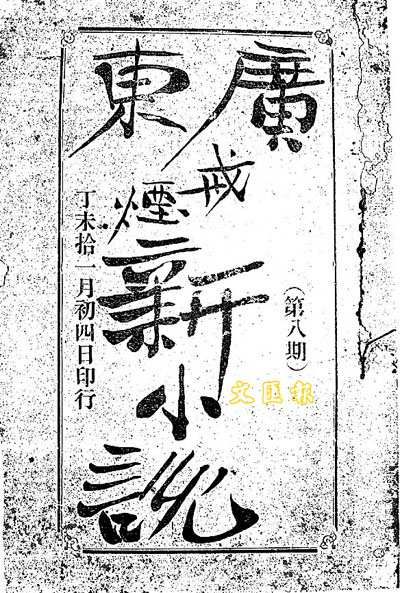 廣東
戒煙
新小説
（第八期）
丁未拾一月初四日印行
文匯報